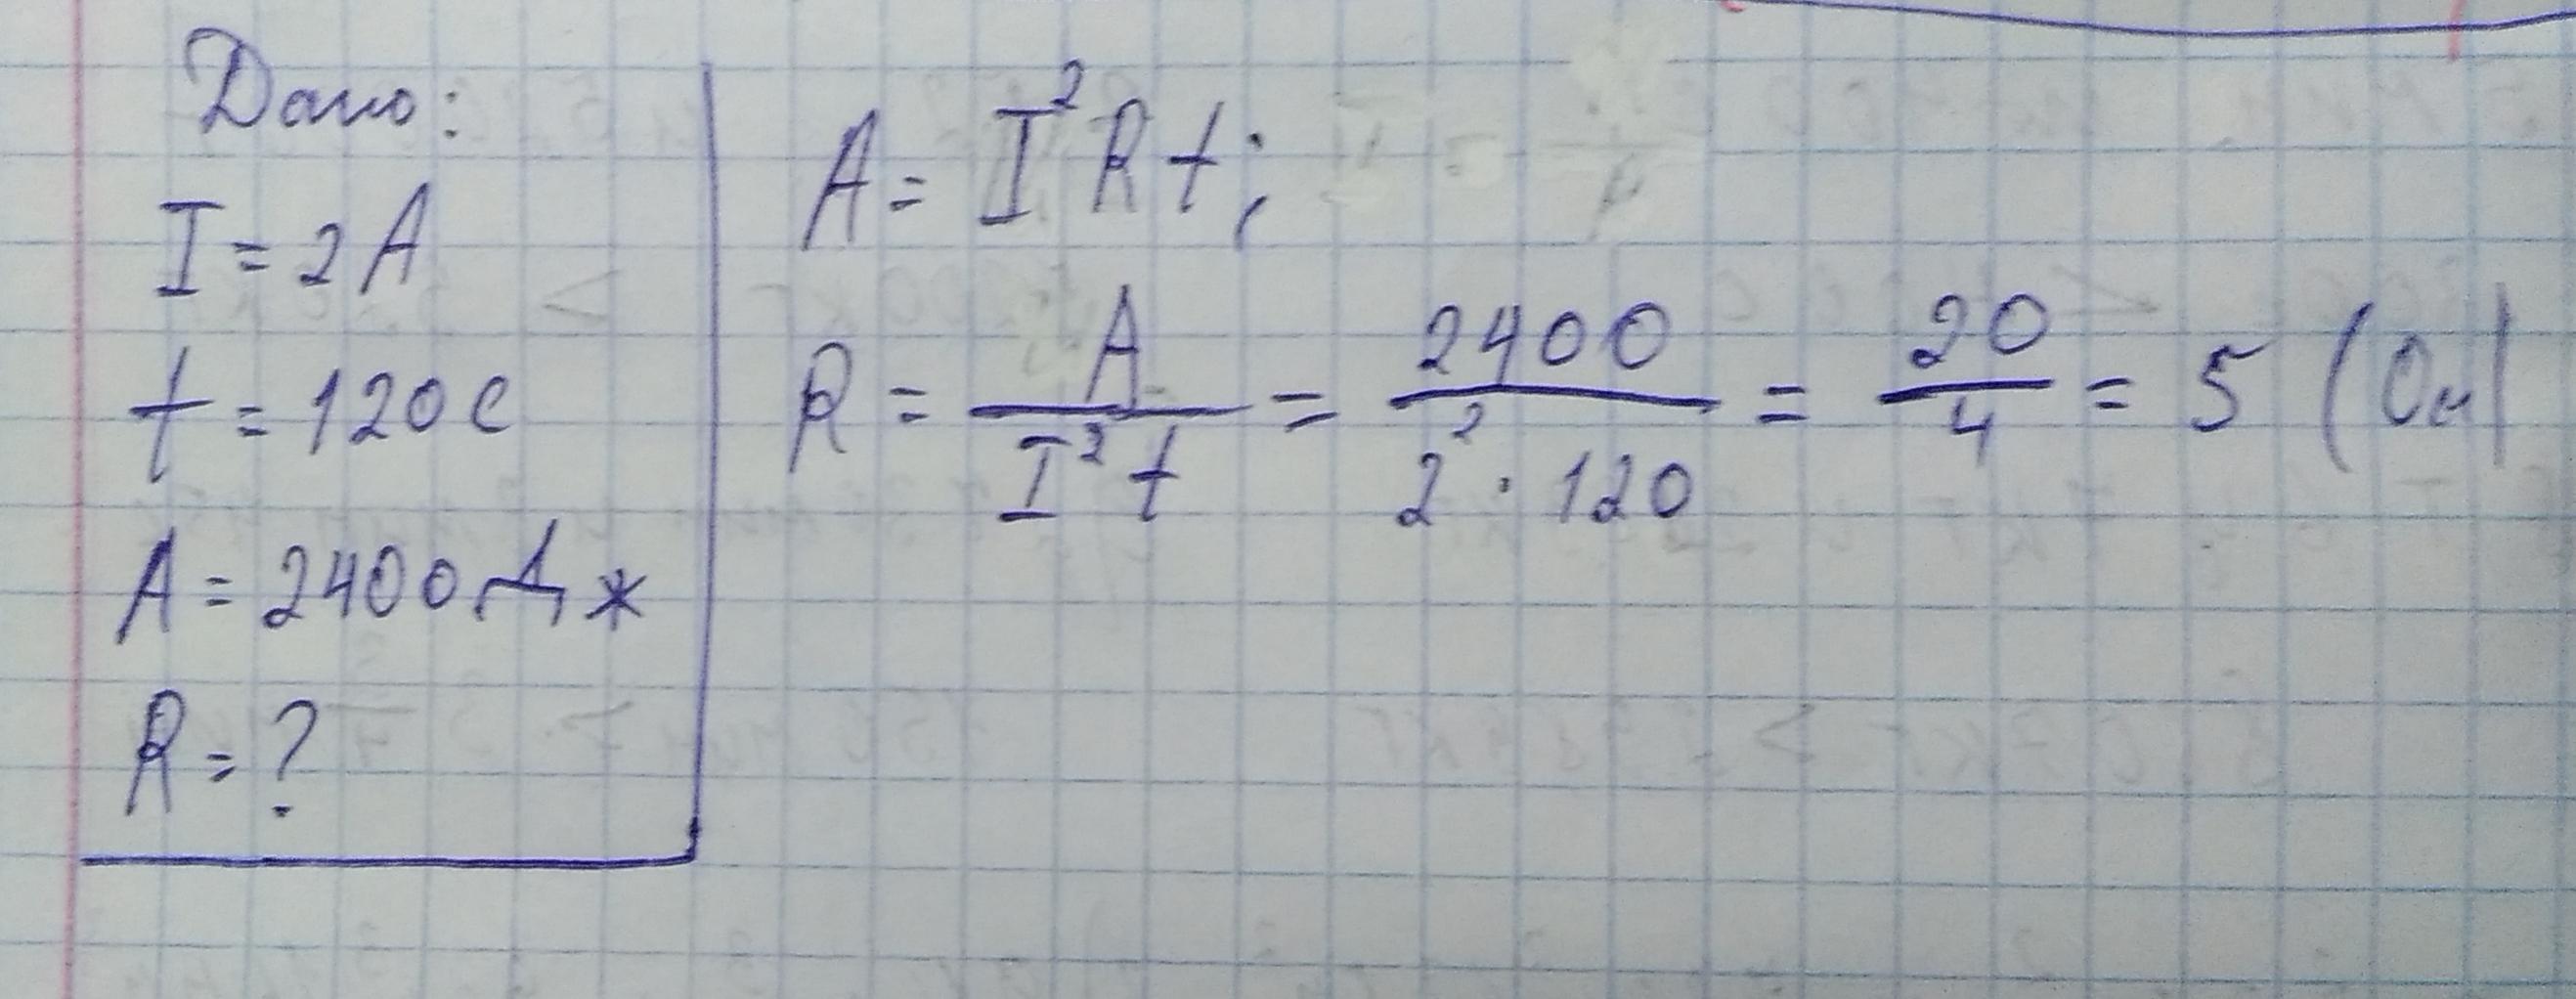 Дано:
I = 2 А
t = 120 с
A = 2400 Дж
R = ?
A = I² R t;
R = A / I² t = 2400 / 2² · 120 = 20 / 4 = 5 (Ом)